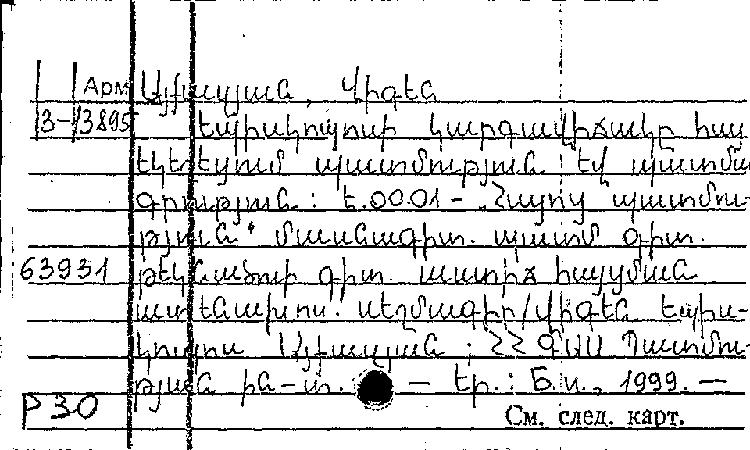 Арм Այքազյան, Վիգեն
3-/3895 Եպիսկոպոսի կարգավիճակը հայ
եկեղեցում պատմության եվ պատմա
գրության: Է.00.01 - "Հայոց պատմու-
թյուն" մասնագիտ. պատմ գիտ.
63931 թեկնածուի գիտ. աստիճ հայցման
ատենախոս. սեղմագիր/Վիգեն Եպիս-
կոպոս Այքազյան ; ՀՀ ԳԱԱ Պատմու-
թյան ին-տ. — Եր.: Б.и., 1999. —
P30 См. след. карт.